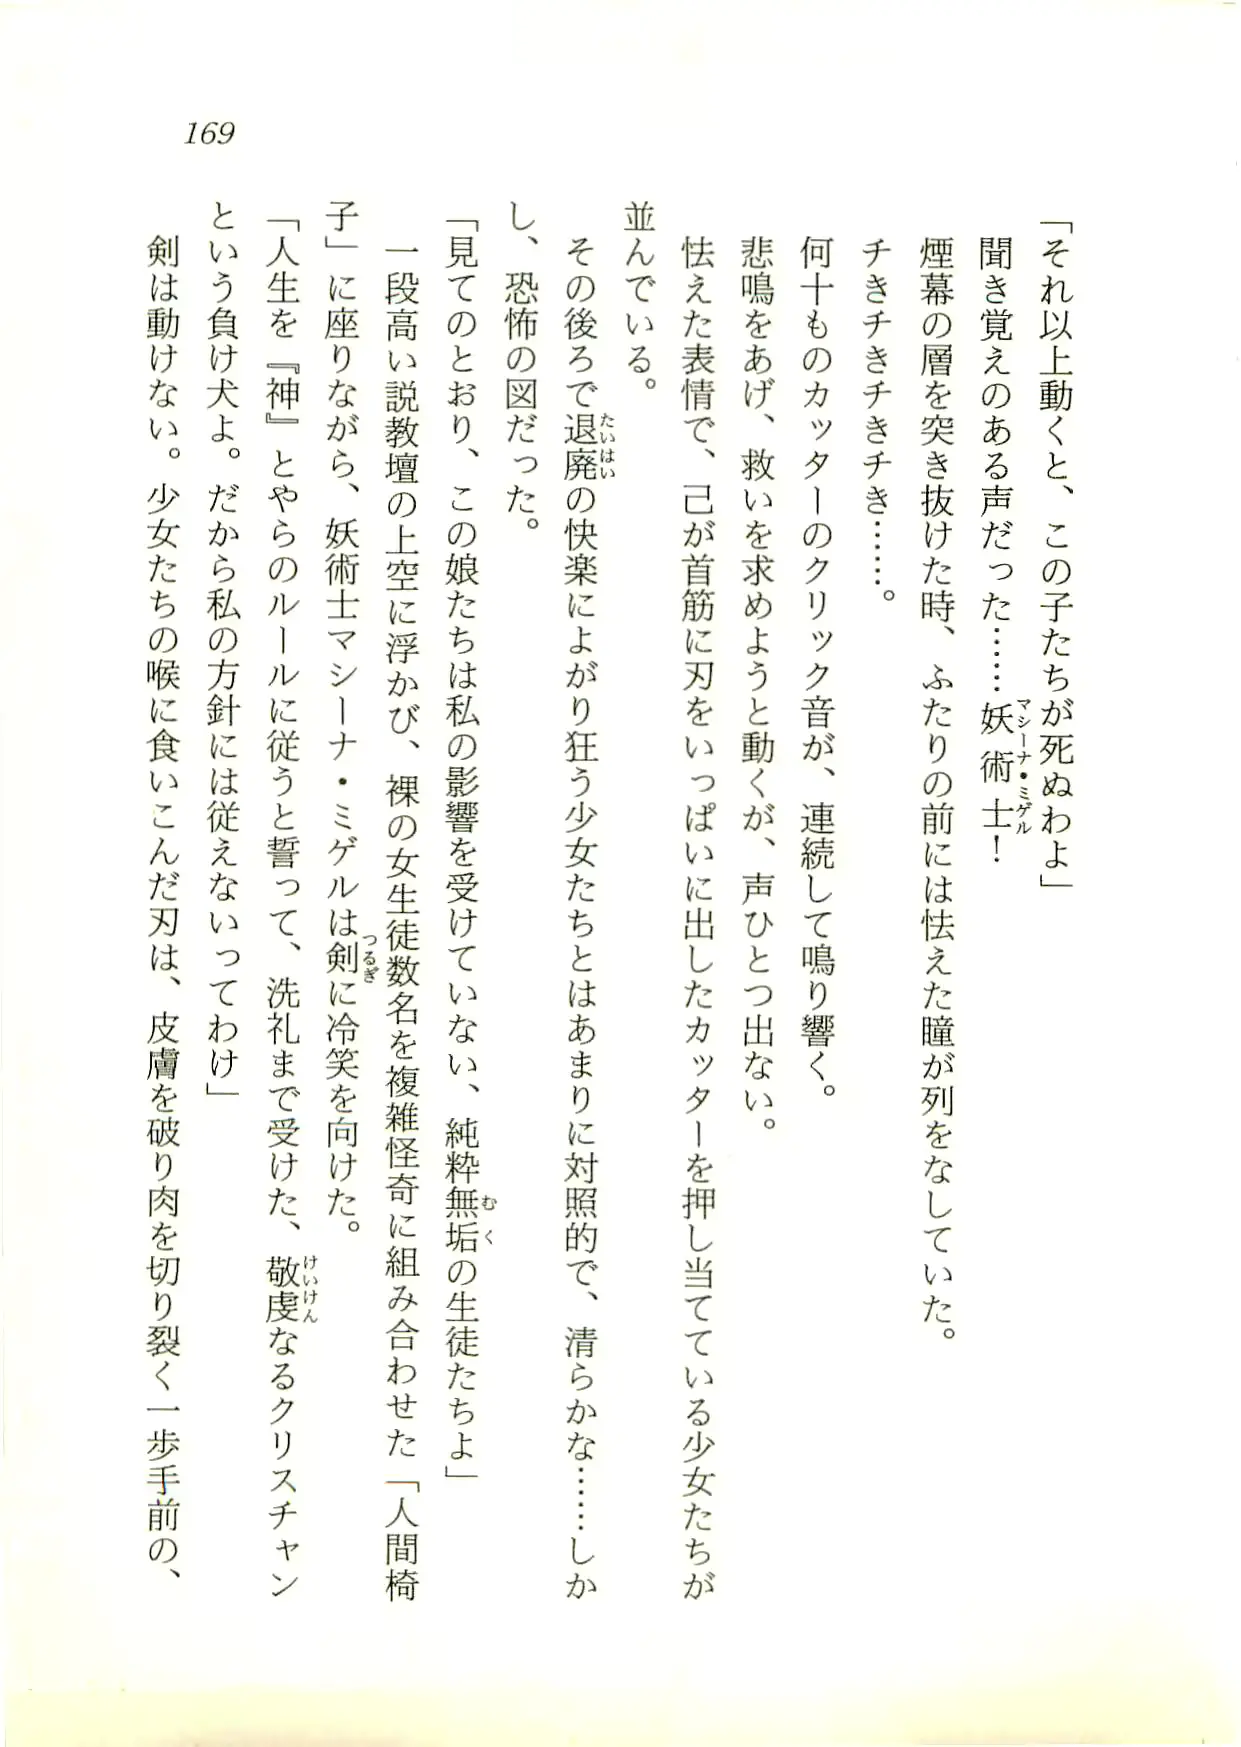 169
「それ以上動くと、この子たちが死ぬわよ」
聞き覚えのある声だった……妖術士！
マシーナ・ミゲル
煙幕の層を突き抜けた時、ふたりの前には怯えた瞳が列をなしていた。
チきチきチきチき……。
何十ものカッターのクリック音が、連続して鳴り響く。
悲鳴をあげ、救いを求めようと動くが、声ひとつ出ない。
怯えた表情で、己が首筋に刃をいっぱいに出したカッターを押し当てている少女たちが
並んでいる。
その後ろで退廃の快楽によがり狂う少女たちとはあまりに対照的で、清らかな……しか
たいはい
し、恐怖の図だった。
「見てのとおり、この娘たちは私の影響を受けていない、純粋無垢の生徒たちよ」
むく
一段高い説教壇の上空に浮かび、裸の女生徒数名を複雑怪奇に組み合わせた「人間椅
子」に座りながら、妖術士マシーナ・ミゲルは剣に冷笑を向けた。
つるぎ
「人生を『神』とやらのルールに従うと誓って、洗礼まで受けた、敬虔なるクリスチャン
けいけん
という負け犬よ。だから私の方針には従えないってわけ」
剣は動けない。少女たちの喉に食いこんだ刃は、皮膚を破り肉を切り裂く一歩手前の、